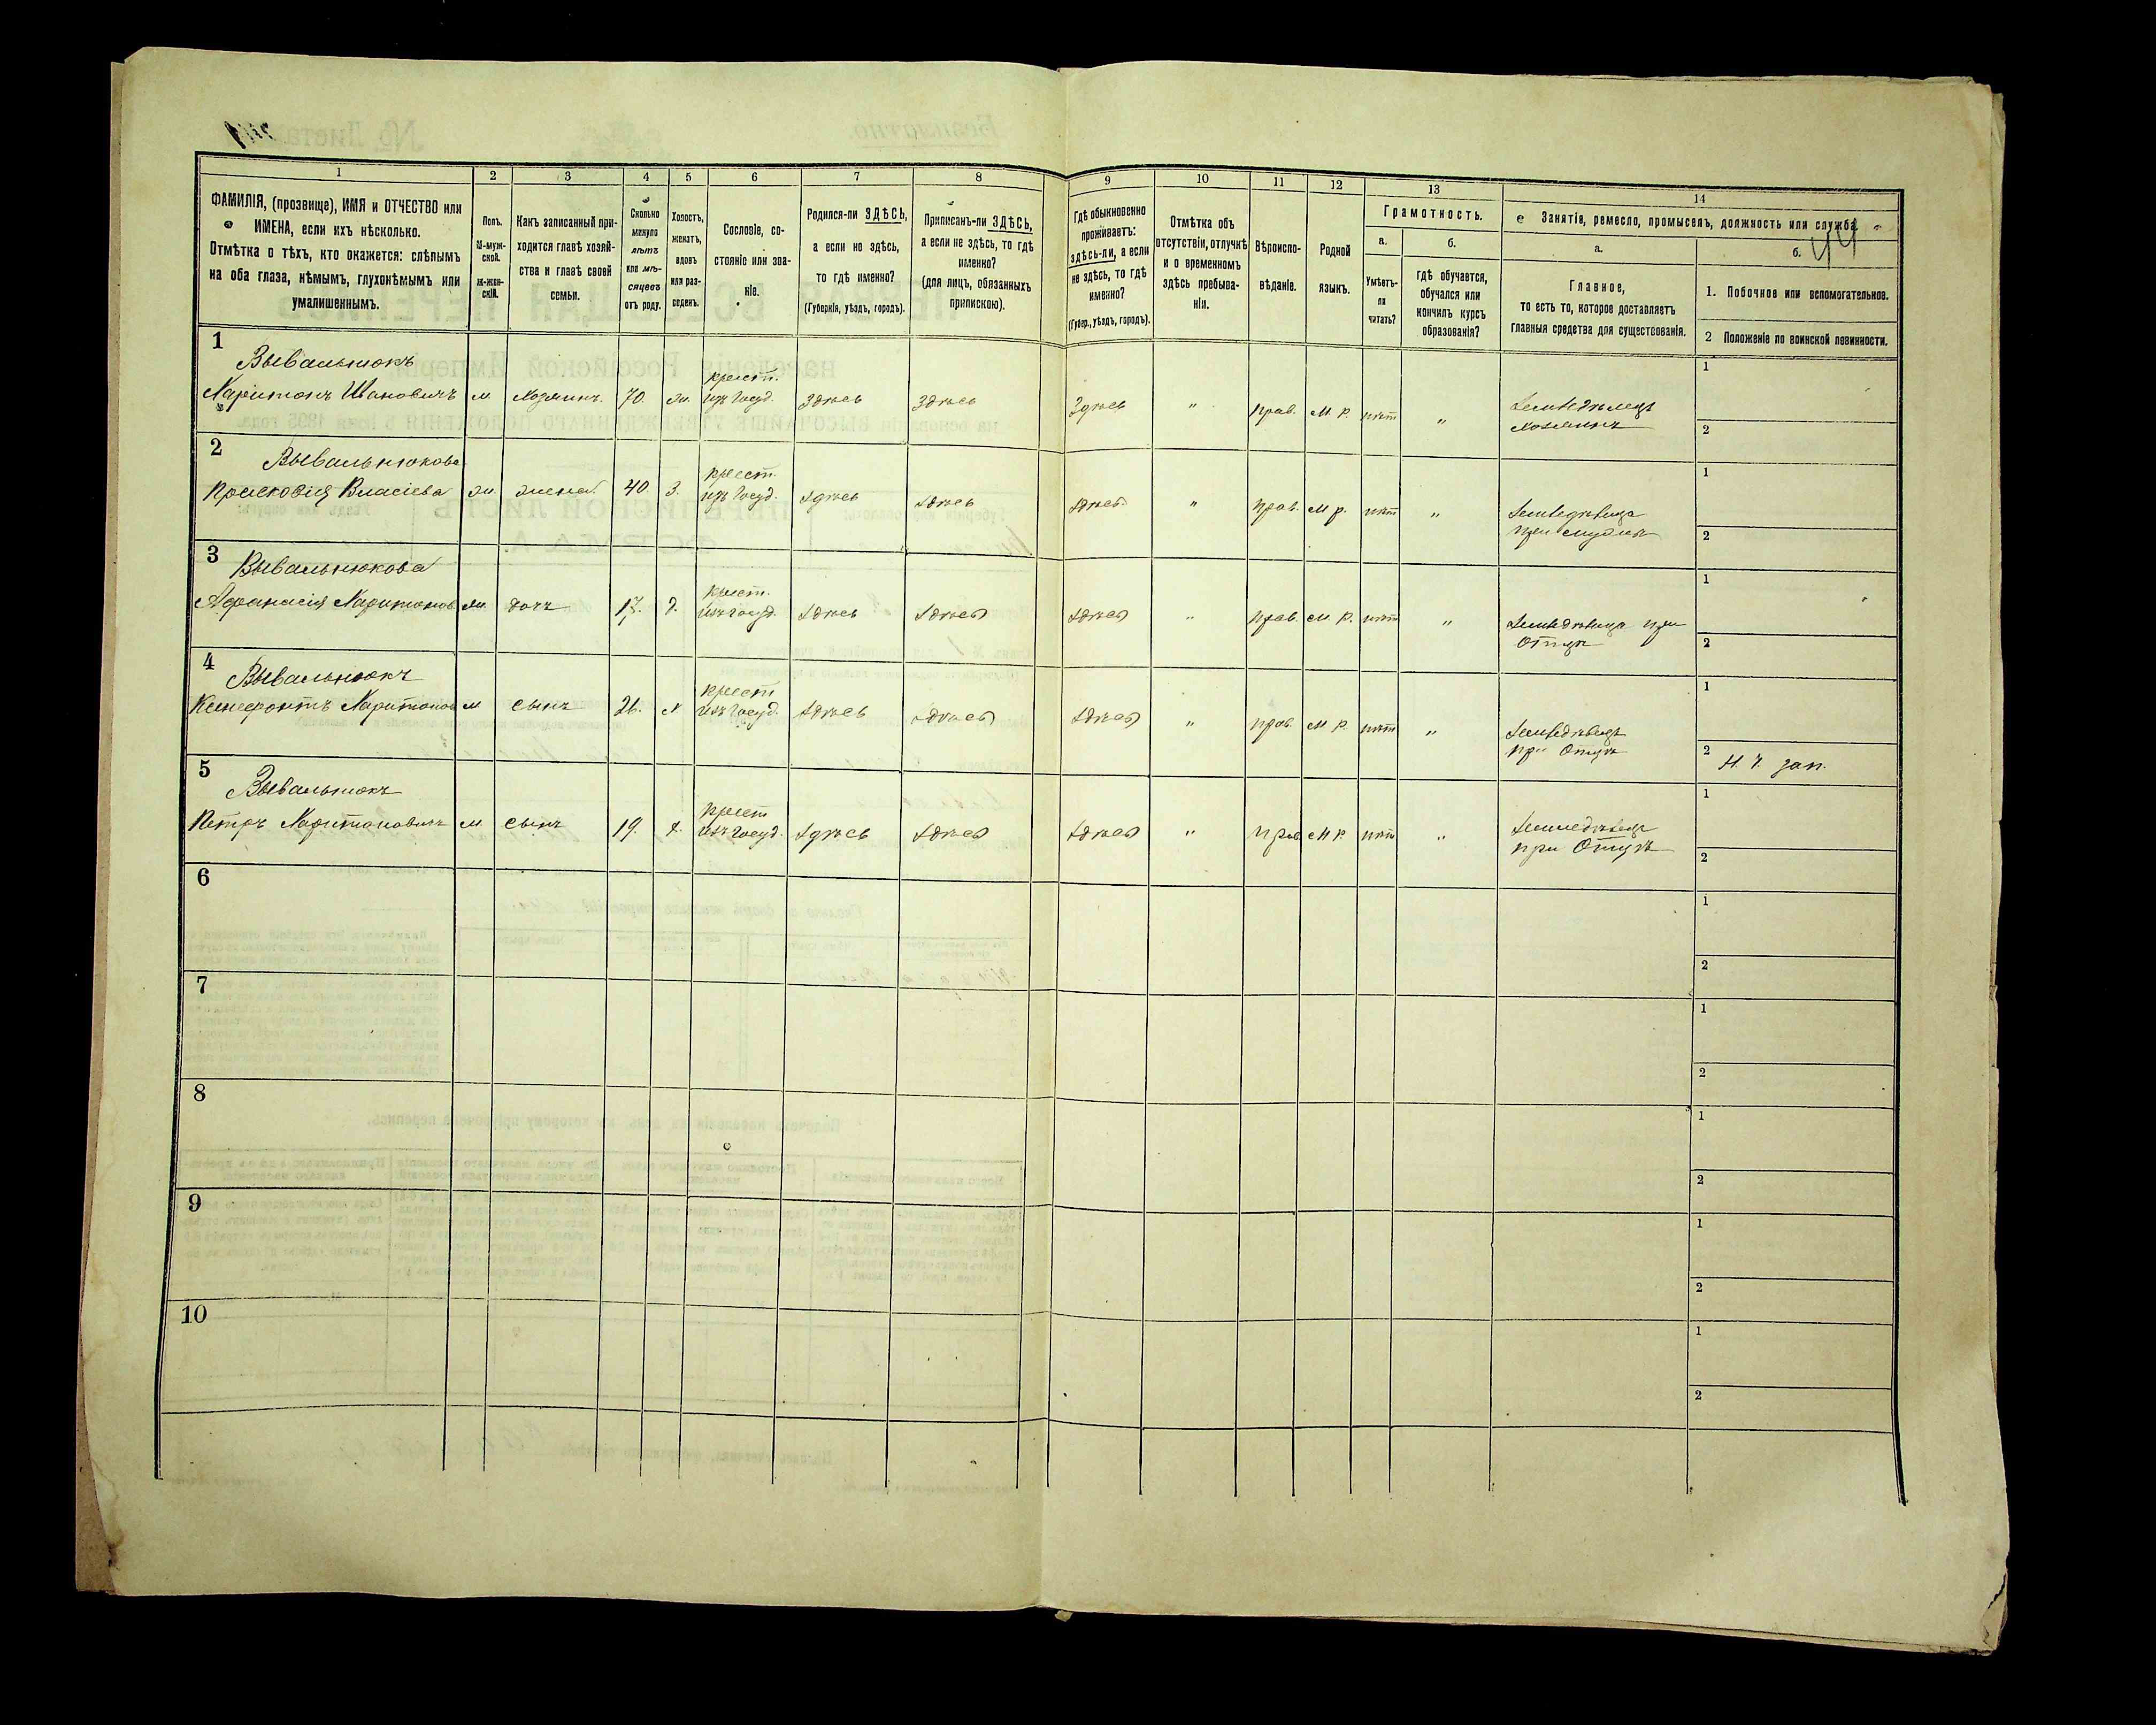 1 2 3 4 5 6 7 8 9 10 11 12 13 14
ФАМИЛІЯ, (прозвище), ИМЯ и ОТЧЕСТВО или
ИМЕНА, если ихъ нѣсколько.
Отмѣтка о тѣхъ, кто окажется: слѣпымъ
на оба глаза, нѣмымъ, глухонѣмымъ или
умалишеннымъ.
Полъ.
М-муж-
ской.
Ж-жен-
скій.
Какъ записанный при-
ходится главѣ хозяй-
ства и главѣ своей
семьи.
Сколько
минуло
лѣтъ
или мѣ-
сяцевъ
отъ роду.
Холостъ,
женатъ,
вдовъ
или раз-
веденъ.
Сословіе, со-
стояніе или зва-
ніе.
Родился-ли ЗДѢСЬ,
а если не здѣсь,
то гдѣ именно?
(Губернія, уѣздъ, городъ).
Приписанъ-ли ЗДѢСЬ,
а если не здѣсь, то гдѣ
именно?
(для лицъ, обязанныхъ
припискою).
Гдѣ обыкновенно
проживаетъ:
здѣсь-ли, а если
не здѣсь, то гдѣ
именно?
(Губер., уѣздъ, городъ).
Отмѣтка объ
отсутствіи, отлучкѣ
и о временномъ
здѣсь пребыва-
ніи.
Вѣроиспо-
вѣданіе.
Родной
языкъ.
Грамотность.
а.
Умѣетъ-
ли
читать?
б.
гдѣ обучается,
обучался или
кончилъ курсъ
образованія?
Занятіе, ремесло, промыселъ, должность или служба.
44
а.
Главное,
то есть то, которое доставляетъ
главныя средства для существованія.
б.
1. Побочное или вспомогательное.
2 Положеніе по воинской повинности.
1
Вывальнюкъ
Харитонъ Ивановичъ м хозяинъ. 70. ж. крест. изъ госуд. здѣсь здѣсь здѣсь " прав. м р. нѣтъ " Земледѣлецъ
хозяинъ
1
2
2
Вывальнюкова
Прасковія Власіева ж. жена 40 з. крест. изъ госуд. здѣсь здѣсь здѣсь " прав. м р. нѣтъ "
при мужѣ
1
2
3
Вывальнюкова
Афанасія Харитонов. ж. дочь 17. д. крест. изъ госуд. здѣсь здѣсь здѣсь " прав. м р. нѣтъ " при
Отцѣ
1
2
4
Вывальнюкъ
Ксенефонтъ Харитонов м сынъ 26. х крест изъ госуд. здѣсь здѣсь здѣсь " прав. м р. нѣтъ "
при Отцѣ
1
2 Н. Ч. зап.
5
Вывальнюкъ
Петръ Харитоновичъ м. сынъ 19. х. крест изъ госуд. здѣсь здѣсь здѣсь " прав м р. нѣтъ "
при Отцѣ
1
2
6
1
2
7
1
2
8
1
2
9
1
2
10
1
2